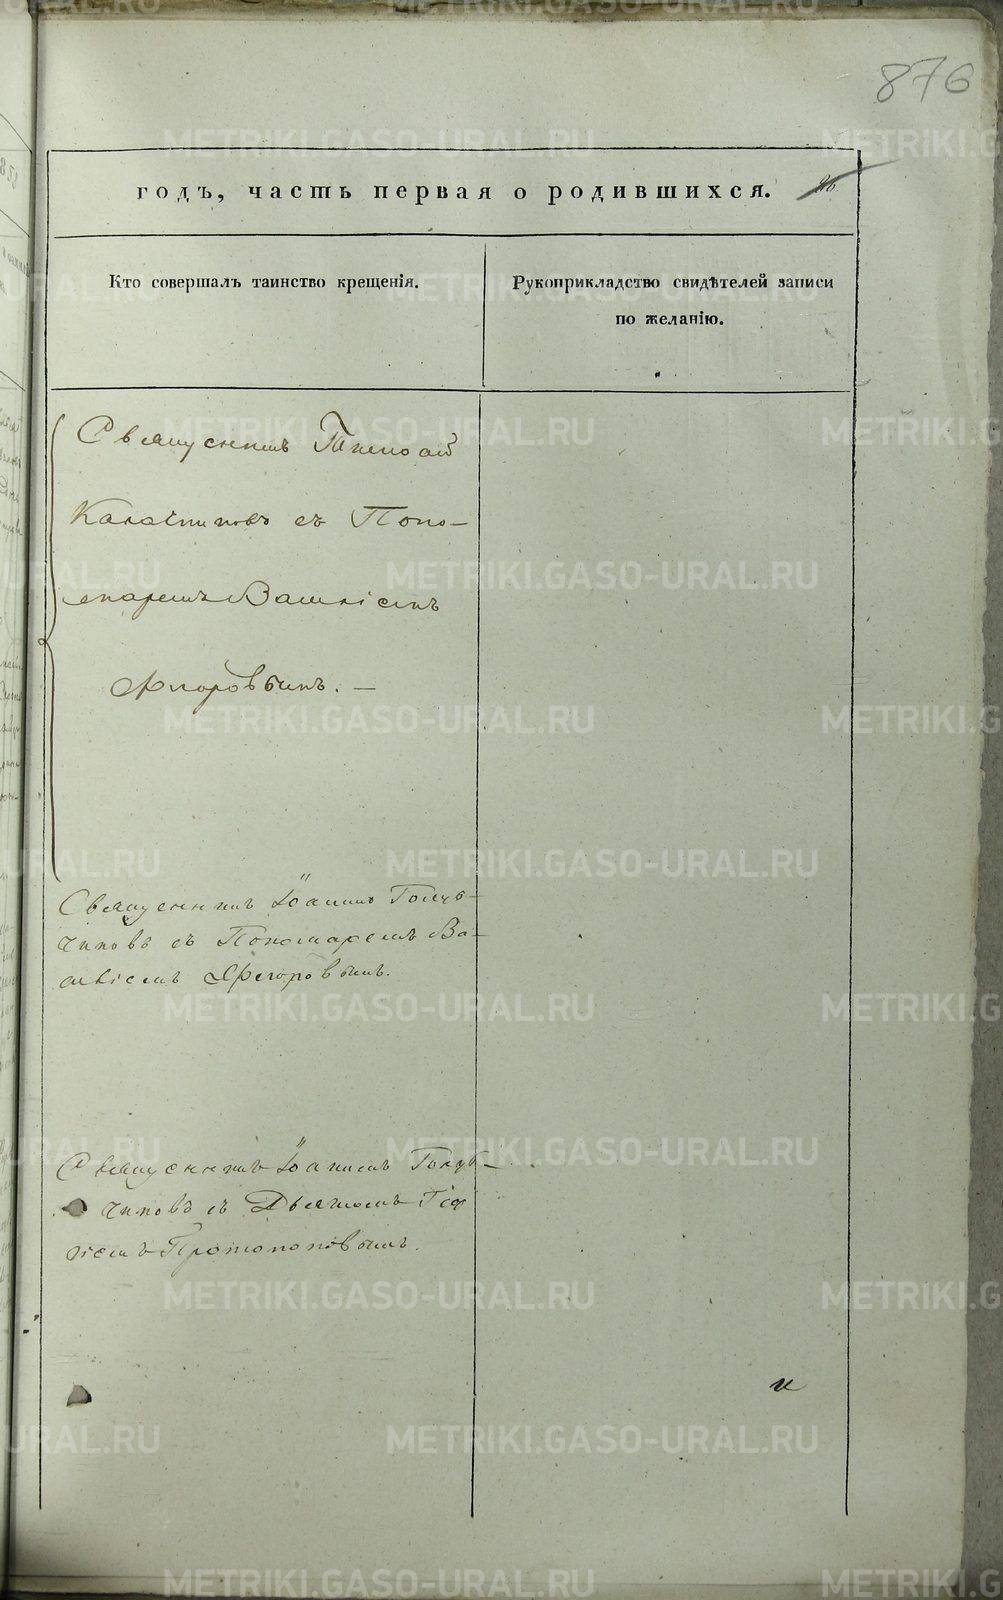 876
годъ, часть первая о родившихся.
26.
Кто совершалъ таинство крещенія.
Рукоприкладство свидѣтелей записи
по желанію.
Священникъ Николай
Калачниковъ съ Поно-
маремъ Вассіемъ
Ѳлоровымъ. —
Священникъ Іоаннъ Голуб-
чиковъ съ Пономаремъ Ва-
Священникъ Іоаннъ Голуб-
чиковъ съ Дьячкомъ
Протопоповымъ.
и
METRIKI.GASO-URAL.RU